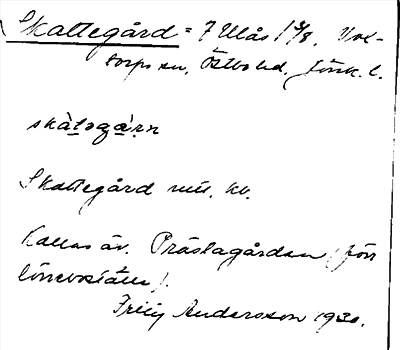 Skattegård = 7 Ulås 1/8, Vox-
torps sn, Östbo hd, Jönk. l.
skàtəgà̱rn
Skattegård mtl. kv.
Kallas äv. Prästagården (förr
löneboställe).
Fritz Andersson 1930.